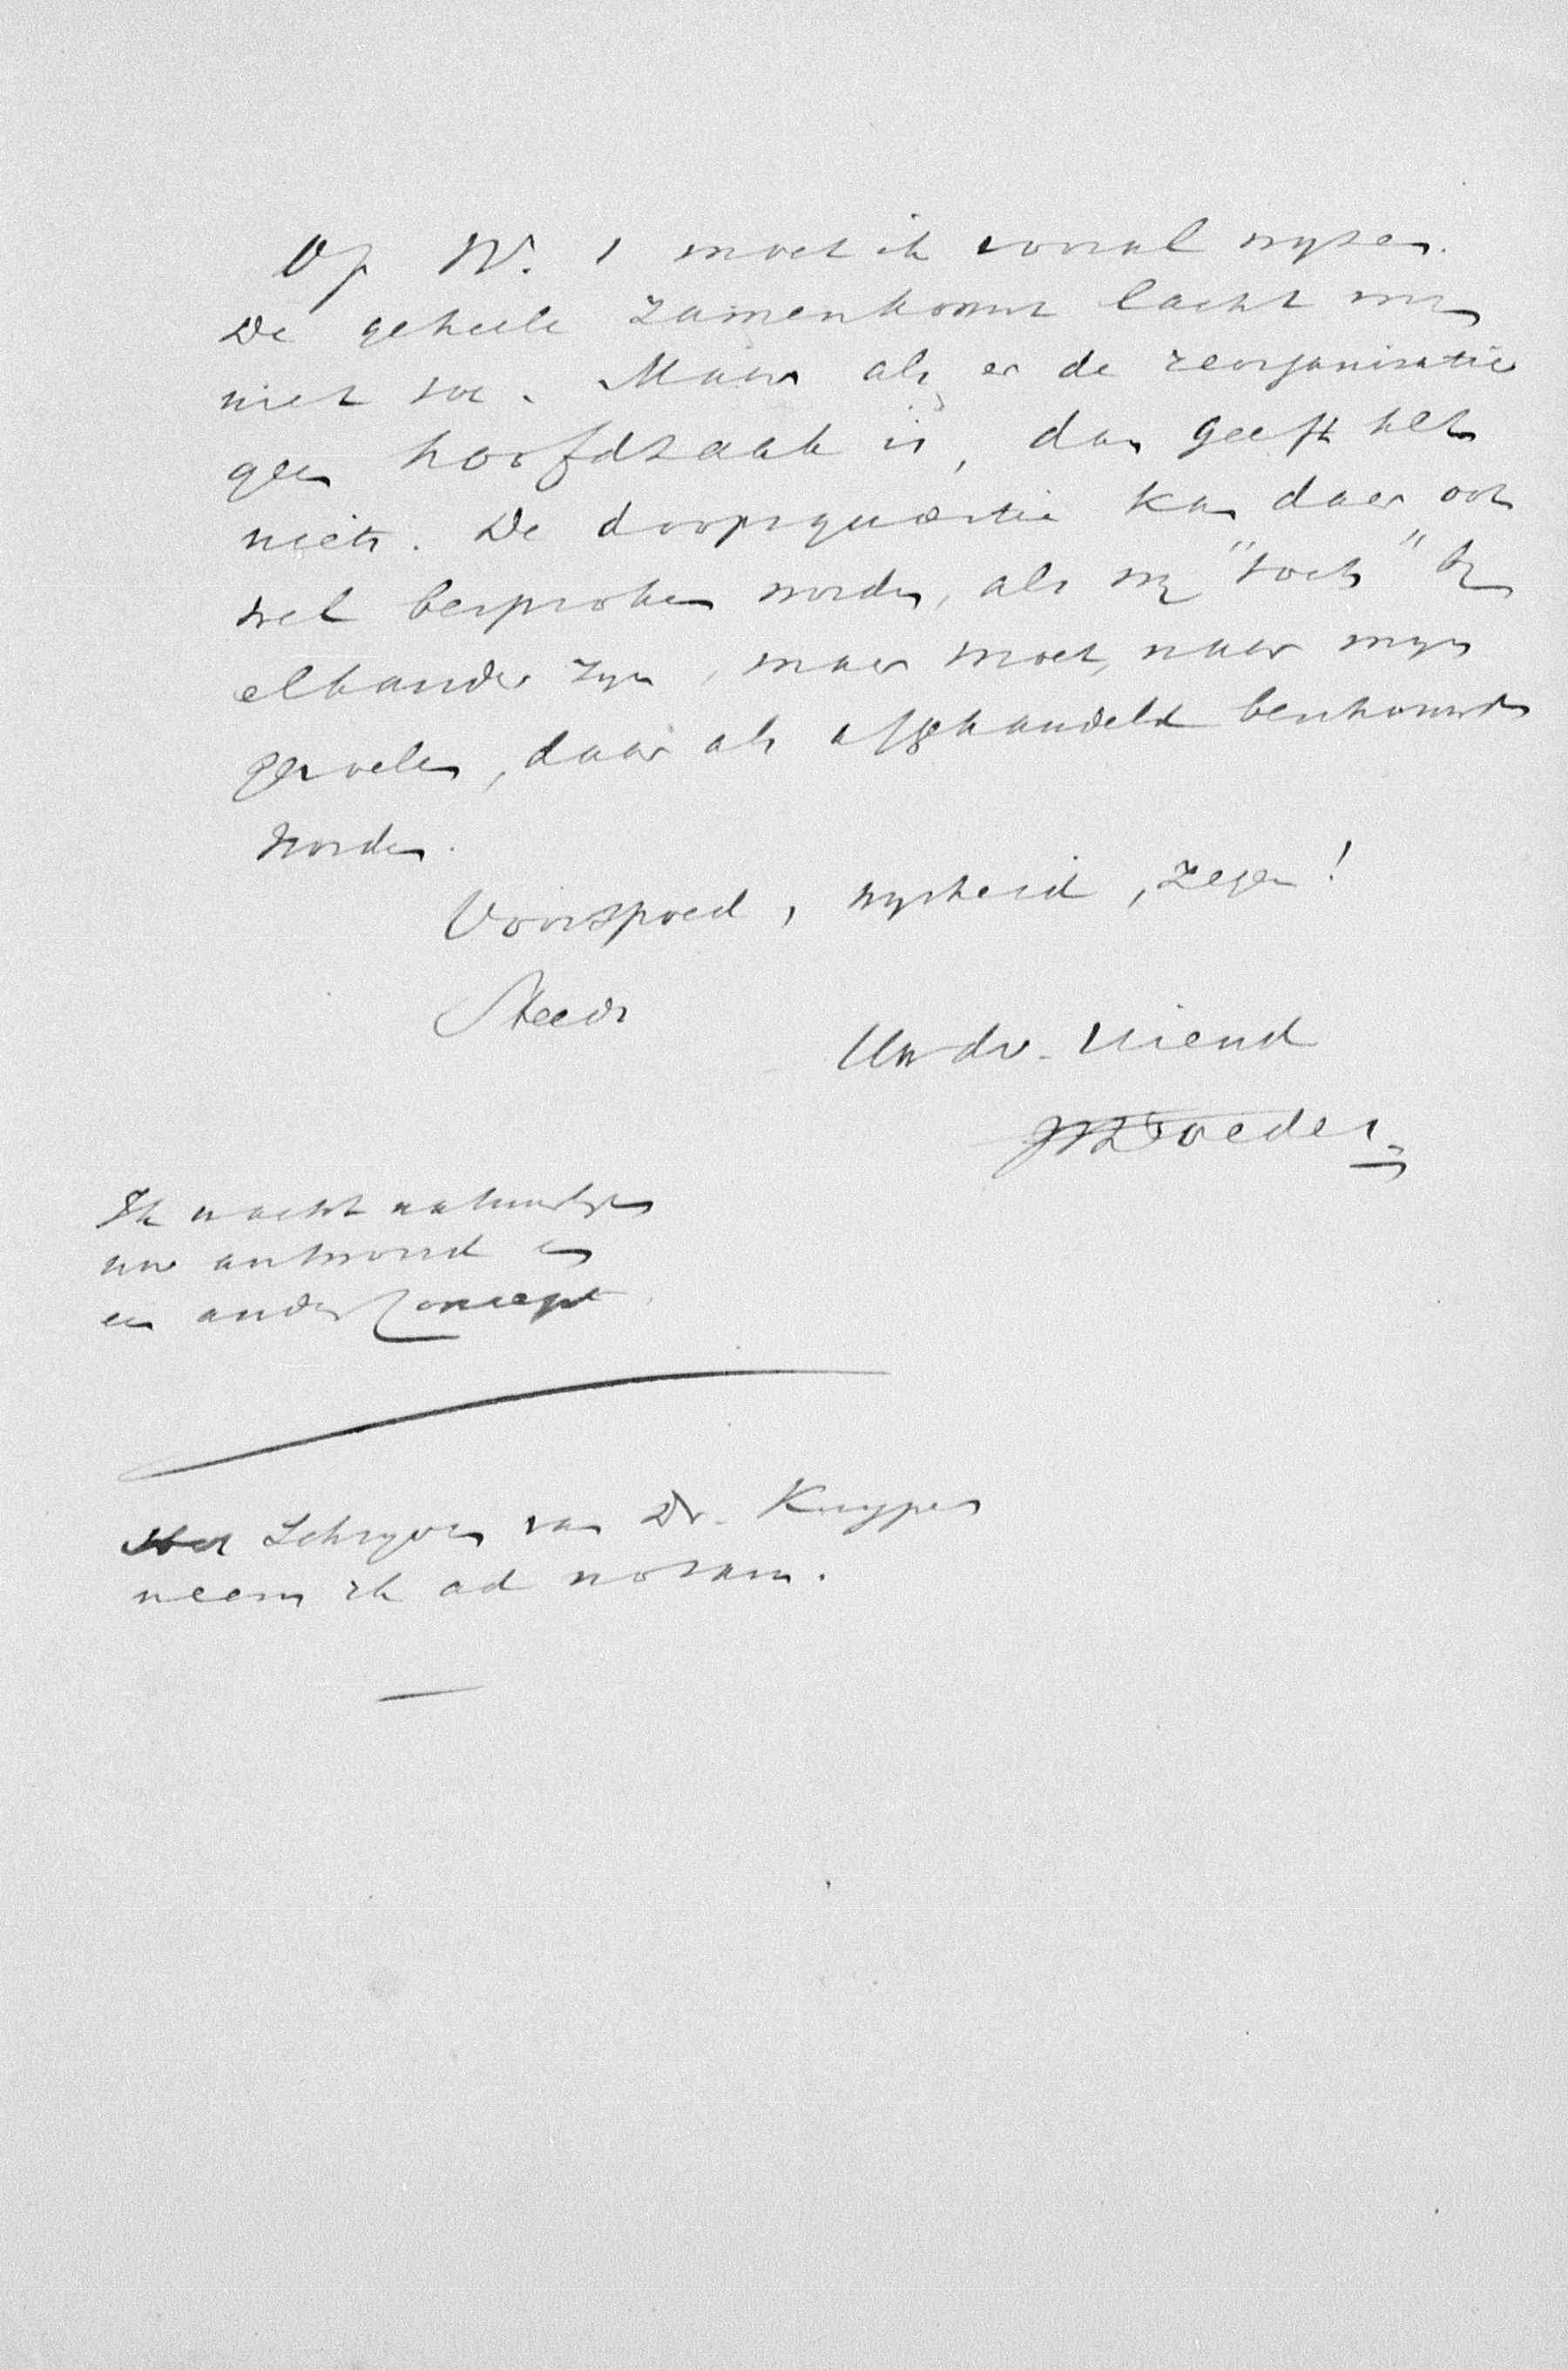 Op N. 1 moet ik vooral wyzen.
De geheele zamenkomst lacht my
niet toe. Maar als er de reorganisatie
geen hoofdzaak is, dan geeft het
niets. De doopsquaestie kan daar ook
wel besproken worden, als wy "toch" by
elkander zyn, maar moet, naar myn
gevoelen, daar als afgehandeld beschouwd
worden.
Voorspoed, wysheid, zegen!
Steeds
Uw dv. vriend
JIDoedes
Ik wacht natuurlyk
uw antwoord en
een ander concept.
Het Schryven van Dr. Kuyper
neem ik ad notam.